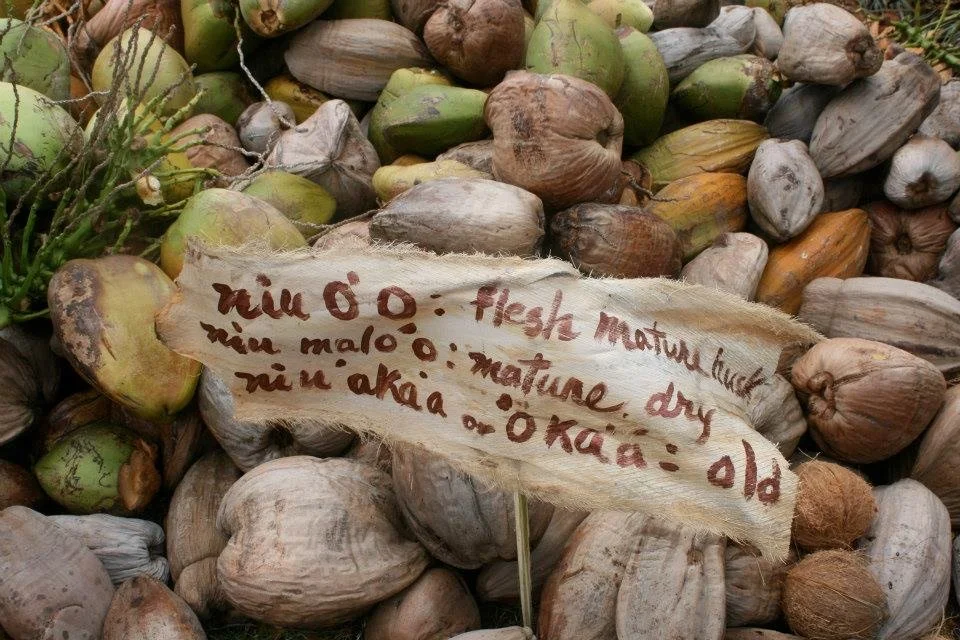 niu Ó Ó: flesh mature husk
niu maló ó: mature. dry
niu 'aka'a or Öka'a = old